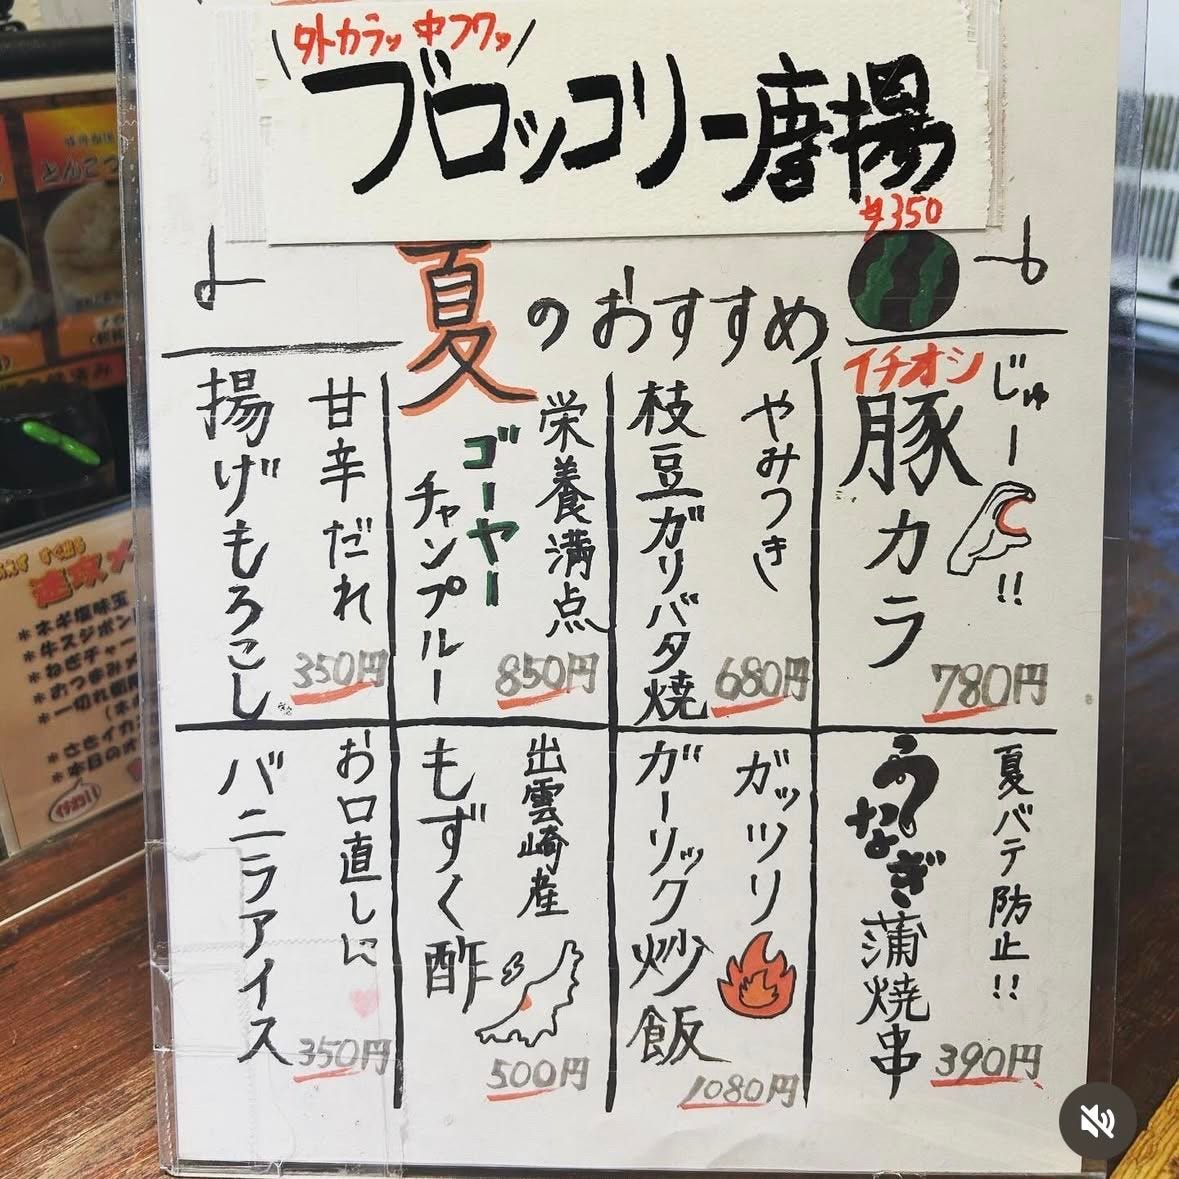 外カラッ 中フワッ
ブロッコリー唐揚
¥350
夏のおすすめ
イチオシ
じゅー!!
豚カラ
780円
やみつき
枝豆ガリバタ焼
680円
栄養満点
ゴーヤー
チャンプルー
850円
甘辛だれ
揚げもろこし
350円
夏バテ防止!!
うなぎ
蒲焼串
390円
ガッツリ
ガーリック炒飯
1080円
出雲崎産
もずく酢
500円
お口直しに
バニラアイス
350円
とんこつ
速攻メ
*ネギ塩味玉
*牛スジポン
*ねぎチャー
*おつまみメ
*さきイカ
*本日のオ
イチオシ!!